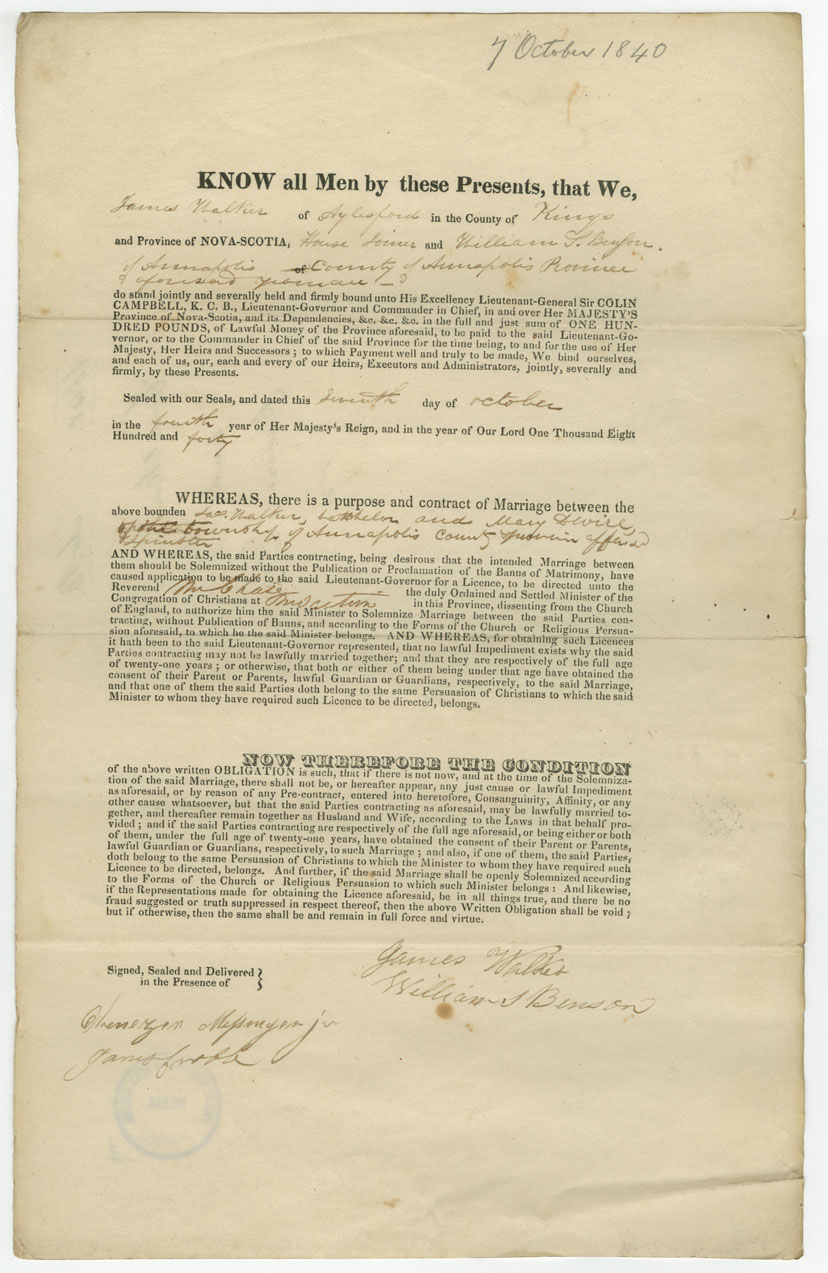 7 October 1840
KNOW all Men by these Presents, that We,
James Walker of Aylesford in the County of Kings
and Province of NOVA-SCOTIA, House Joiner and William S. Benson.
of Annapolis of County of Annapolis Province
aforesaid yeoman
do stand jointly and severally held and firmly bound unto His Excellency Lieutenant-General Sir COLIN
CAMPBELL, K. C. B., Lieutenant-Governor and Commander in Chief, in and over Her MAJESTY'S
Province of Nova-Scotia, and its Dependencies, &c. &c. &c. in the full and just sum of ONE HUN-
DRED POUNDS, of Lawful Money of the Province aforesaid, to be paid to the said Lieutenant-Go-
vernor, or to the Commander in Chief of the said Province for the time being, to and for the use of Her
Majesty, Her Heirs and Successors ; to which Payment well and truly to be made, We bind ourselves,
and each of us, our, each and every of our Heirs, Executors and Administrators, jointly, severally and
firmly, by these Presents.
Sealed with our Seals, and dated this Seventh day of October
in the fourth year of Her Majesty's Reign, and in the year of Our Lord One Thousand Eight
Hundred and forty
WHEREAS, there is a purpose and contract of Marriage between the
above bounden Jas. Walker, batchelor and Mary
of the township of Annapolis County
Spinster
AND WHEREAS, the said Parties contracting, being desirous that the intended Marriage between
them should be Solemnized without the Publication or Proclamation of the Banns of Matrimony, have
caused application to be made to the said Lieutenant-Governor for a Licence, to be directed unto the
Reverend Mr Chase the duly Ordained and Settled Minister of the
Congregation of Christians at in this Province, dissenting from the Church
of England, to authorize him the said Minister to Solemnize Marriage between the said Parties con-
tracting, without Publication of Banns, and according to the Forms of the Church or Religious Persua-
sion aforesaid, to which he the said Minister belongs. AND WHEREAS, for obtaining such Licences
it hath been to the said Lieutenant-Governor represented, that no lawful Impediment exists why the said
Parties contracting may not be lawfully married together; and that they are respectively of the full age
of twenty-one years ; or otherwise, that both or either of them being under that age have obtained the
consent of their Parent or Parents, lawful Guardian or Guardians, respectively, to the said Marriage,
and that one of them the said Parties doth belong to the same Persuasion of Christians to which the said
Minister to whom they have required such Licence to be directed, belongs.
NOW THEREFORE THE CONDITION
of the above written OBLIGATION is such, that if there is not now, and at the time of the Solemniza-
tion of the said Marriage, there shall not be, or hereafter appear, any just cause or lawful Impediment
as aforesaid, or by reason of any Pre-contract, entered into heretofore, Consanguinity, Affinity, or any
other cause whatsoever, but that the said Parties contracting as aforesaid, may be lawfully married to-
gether, and thereafter remain together as Husband and Wife, according to the Laws in that behalf pro-
vided ; and if the said Parties contracting are respectively of the full age aforesaid, or being either or both
of them, under the full age of twenty-one years, have obtained the consent of their Parent or Parents,
lawful Guardian or Guardians, respectively, to such Marriage ; and also, if one of them, the said Parties,
doth belong to the same Persuasion of Christians to which the Minister to whom they have required such
Licence to be directed, belongs. And further, if the said Marriage shall be openly Solemnized according
to the Forms of the Church or Religious Persuasion to which such Minister belongs : And likewise,
if the Representations made for obtaining the Licence aforesaid, be in all things true, and there be no
fraud suggested or truth suppressed in respect thereof, then the above Written Obligation shall be void ;
but if otherwise, then the same shall be and remain in full force and virtue.
James Walker
Signed, Sealed and Delivered
in the Presence of
William S Benson
Ebenezer Messenger jr
James